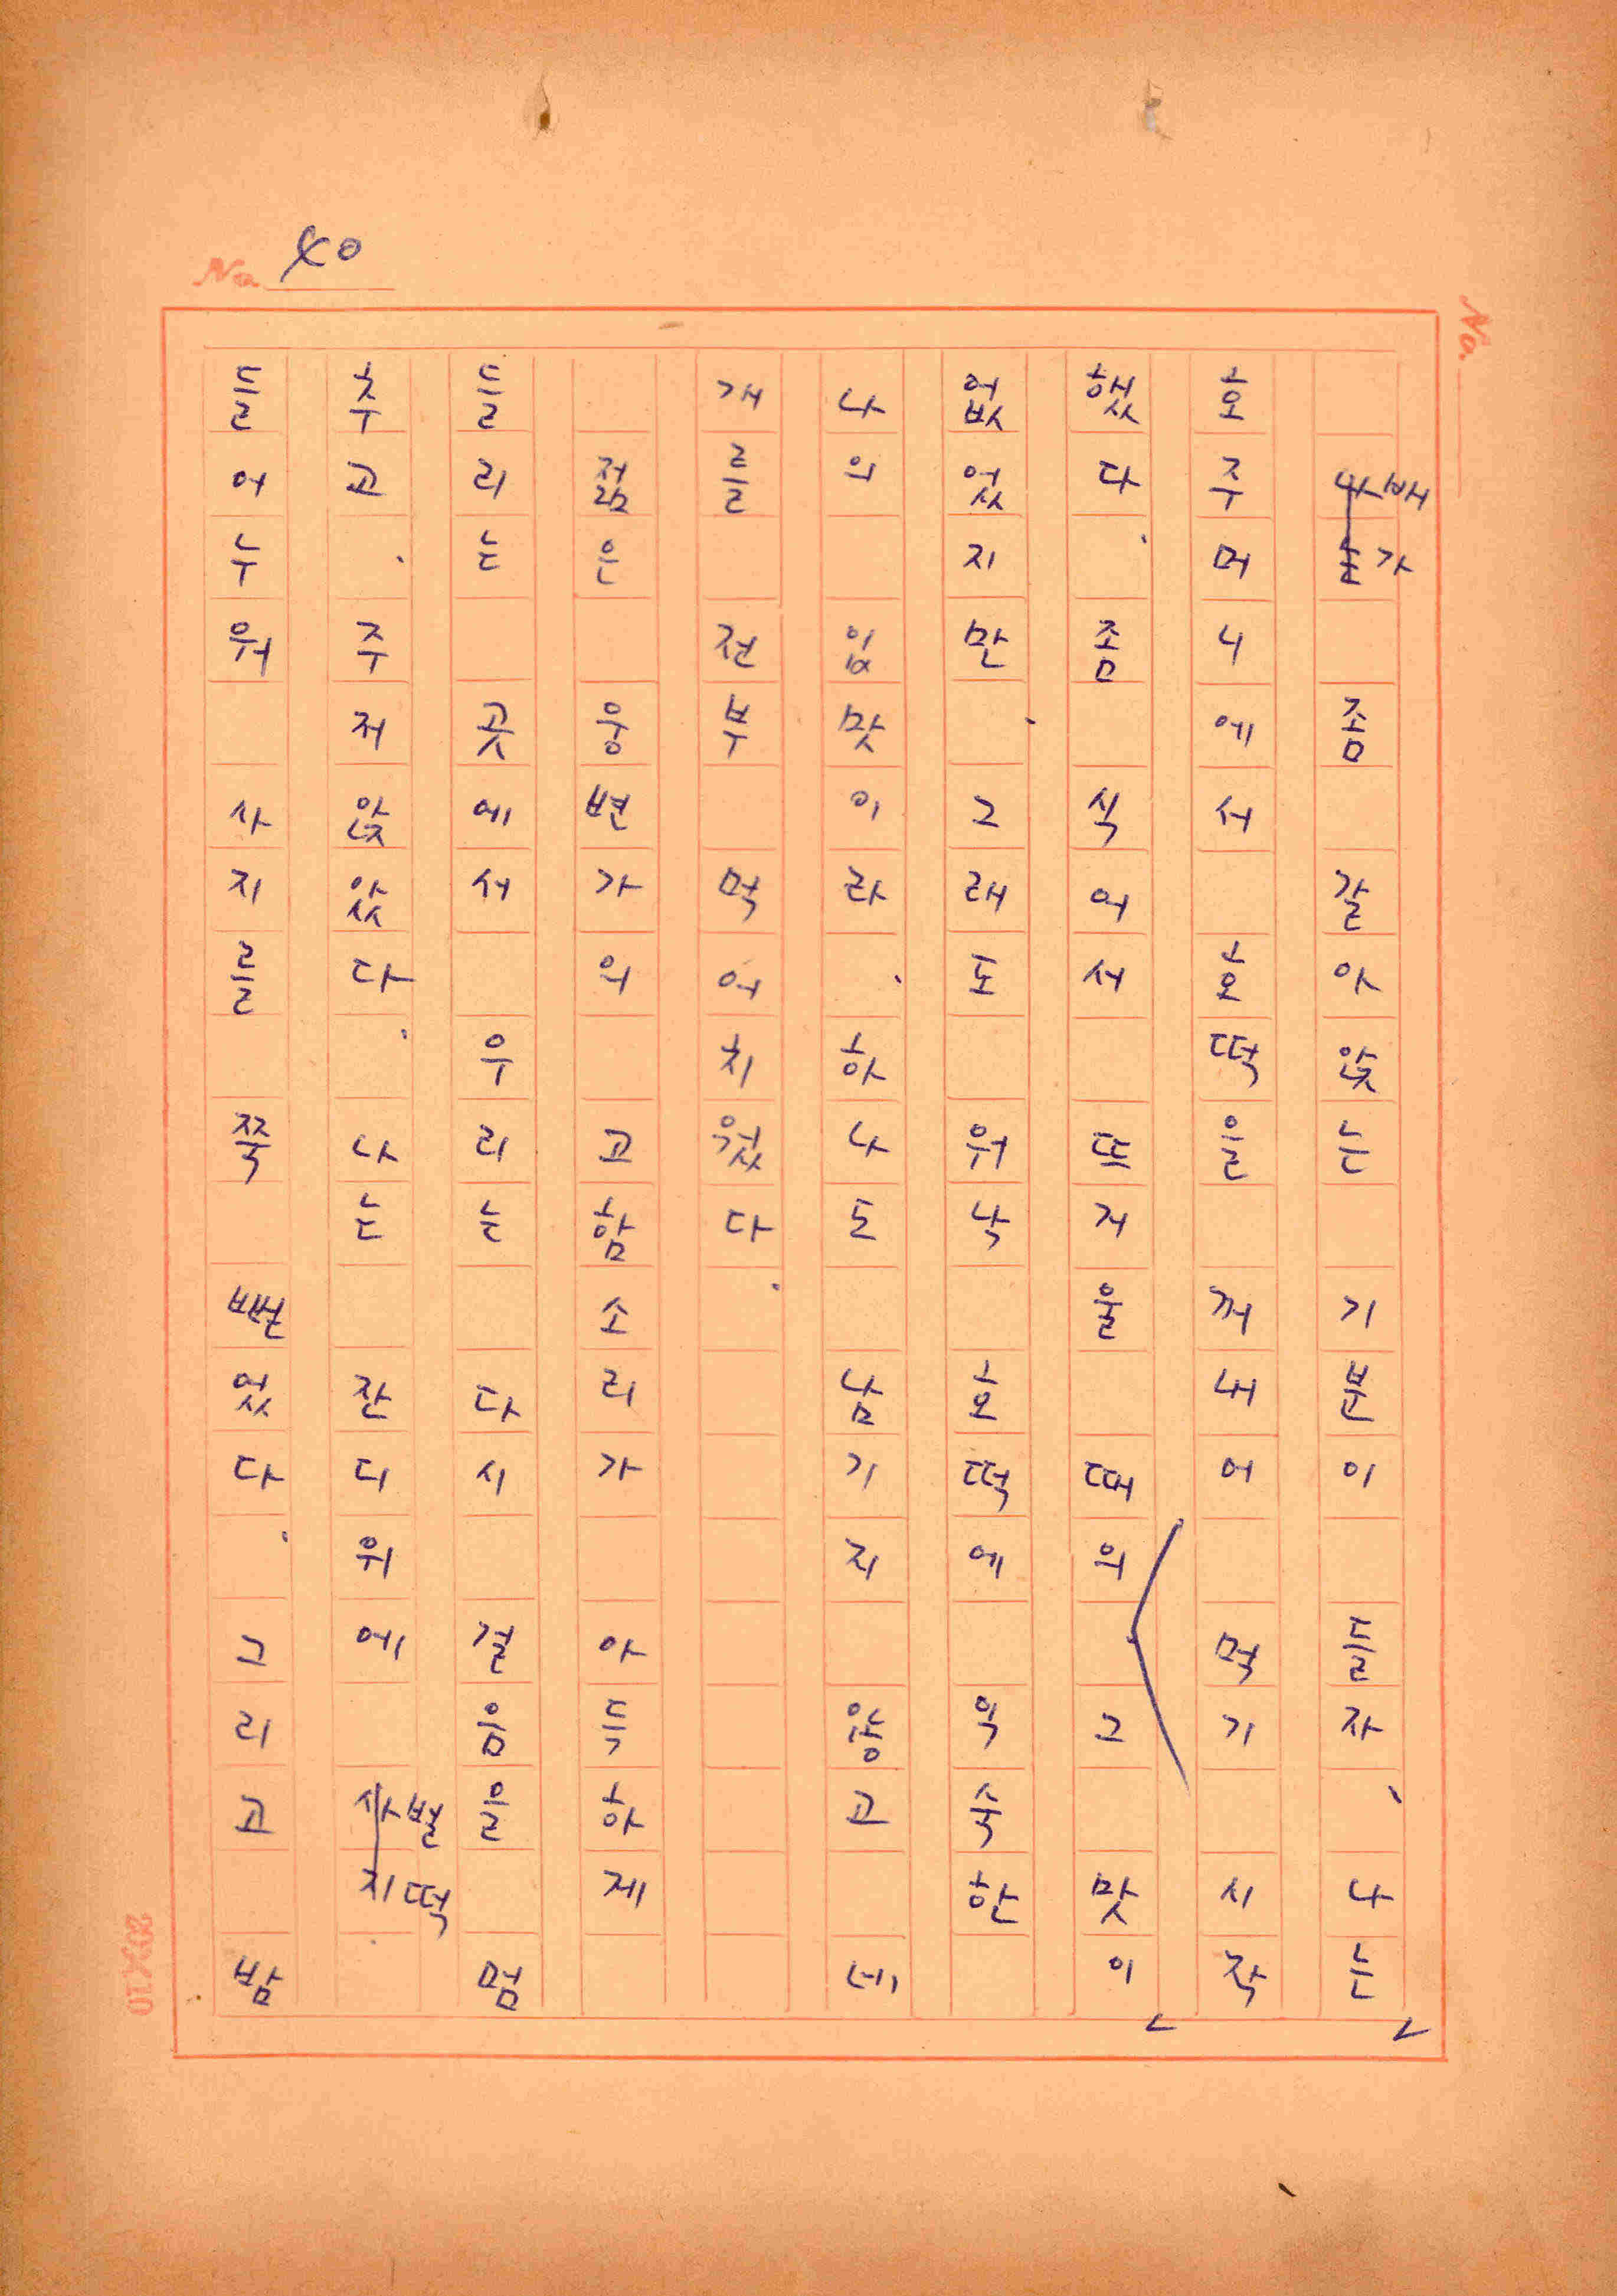 No. 40
No.
배가 좀 갈아앉는 기분이 들자, 나는
호주머니에서 호떡을 꺼내어 먹기 시작
했다. 좀 식어서 뜨거울 때의 그 맛이
없었지만, 그래도 워낙 호떡에 익숙한
나의 입맛이라, 하나도 남기지 않고 네
개를 전부 먹어치웠다.
젊은 웅변가의 고함소리가 아득하게
들리는 곳에서 우리는 다시 걸음을 멈
추고, 주저앉았다. 나는 잔디 위에 벌떡
들어누워 사지를 쭉 뻗었다. 그리고 밤
20X10